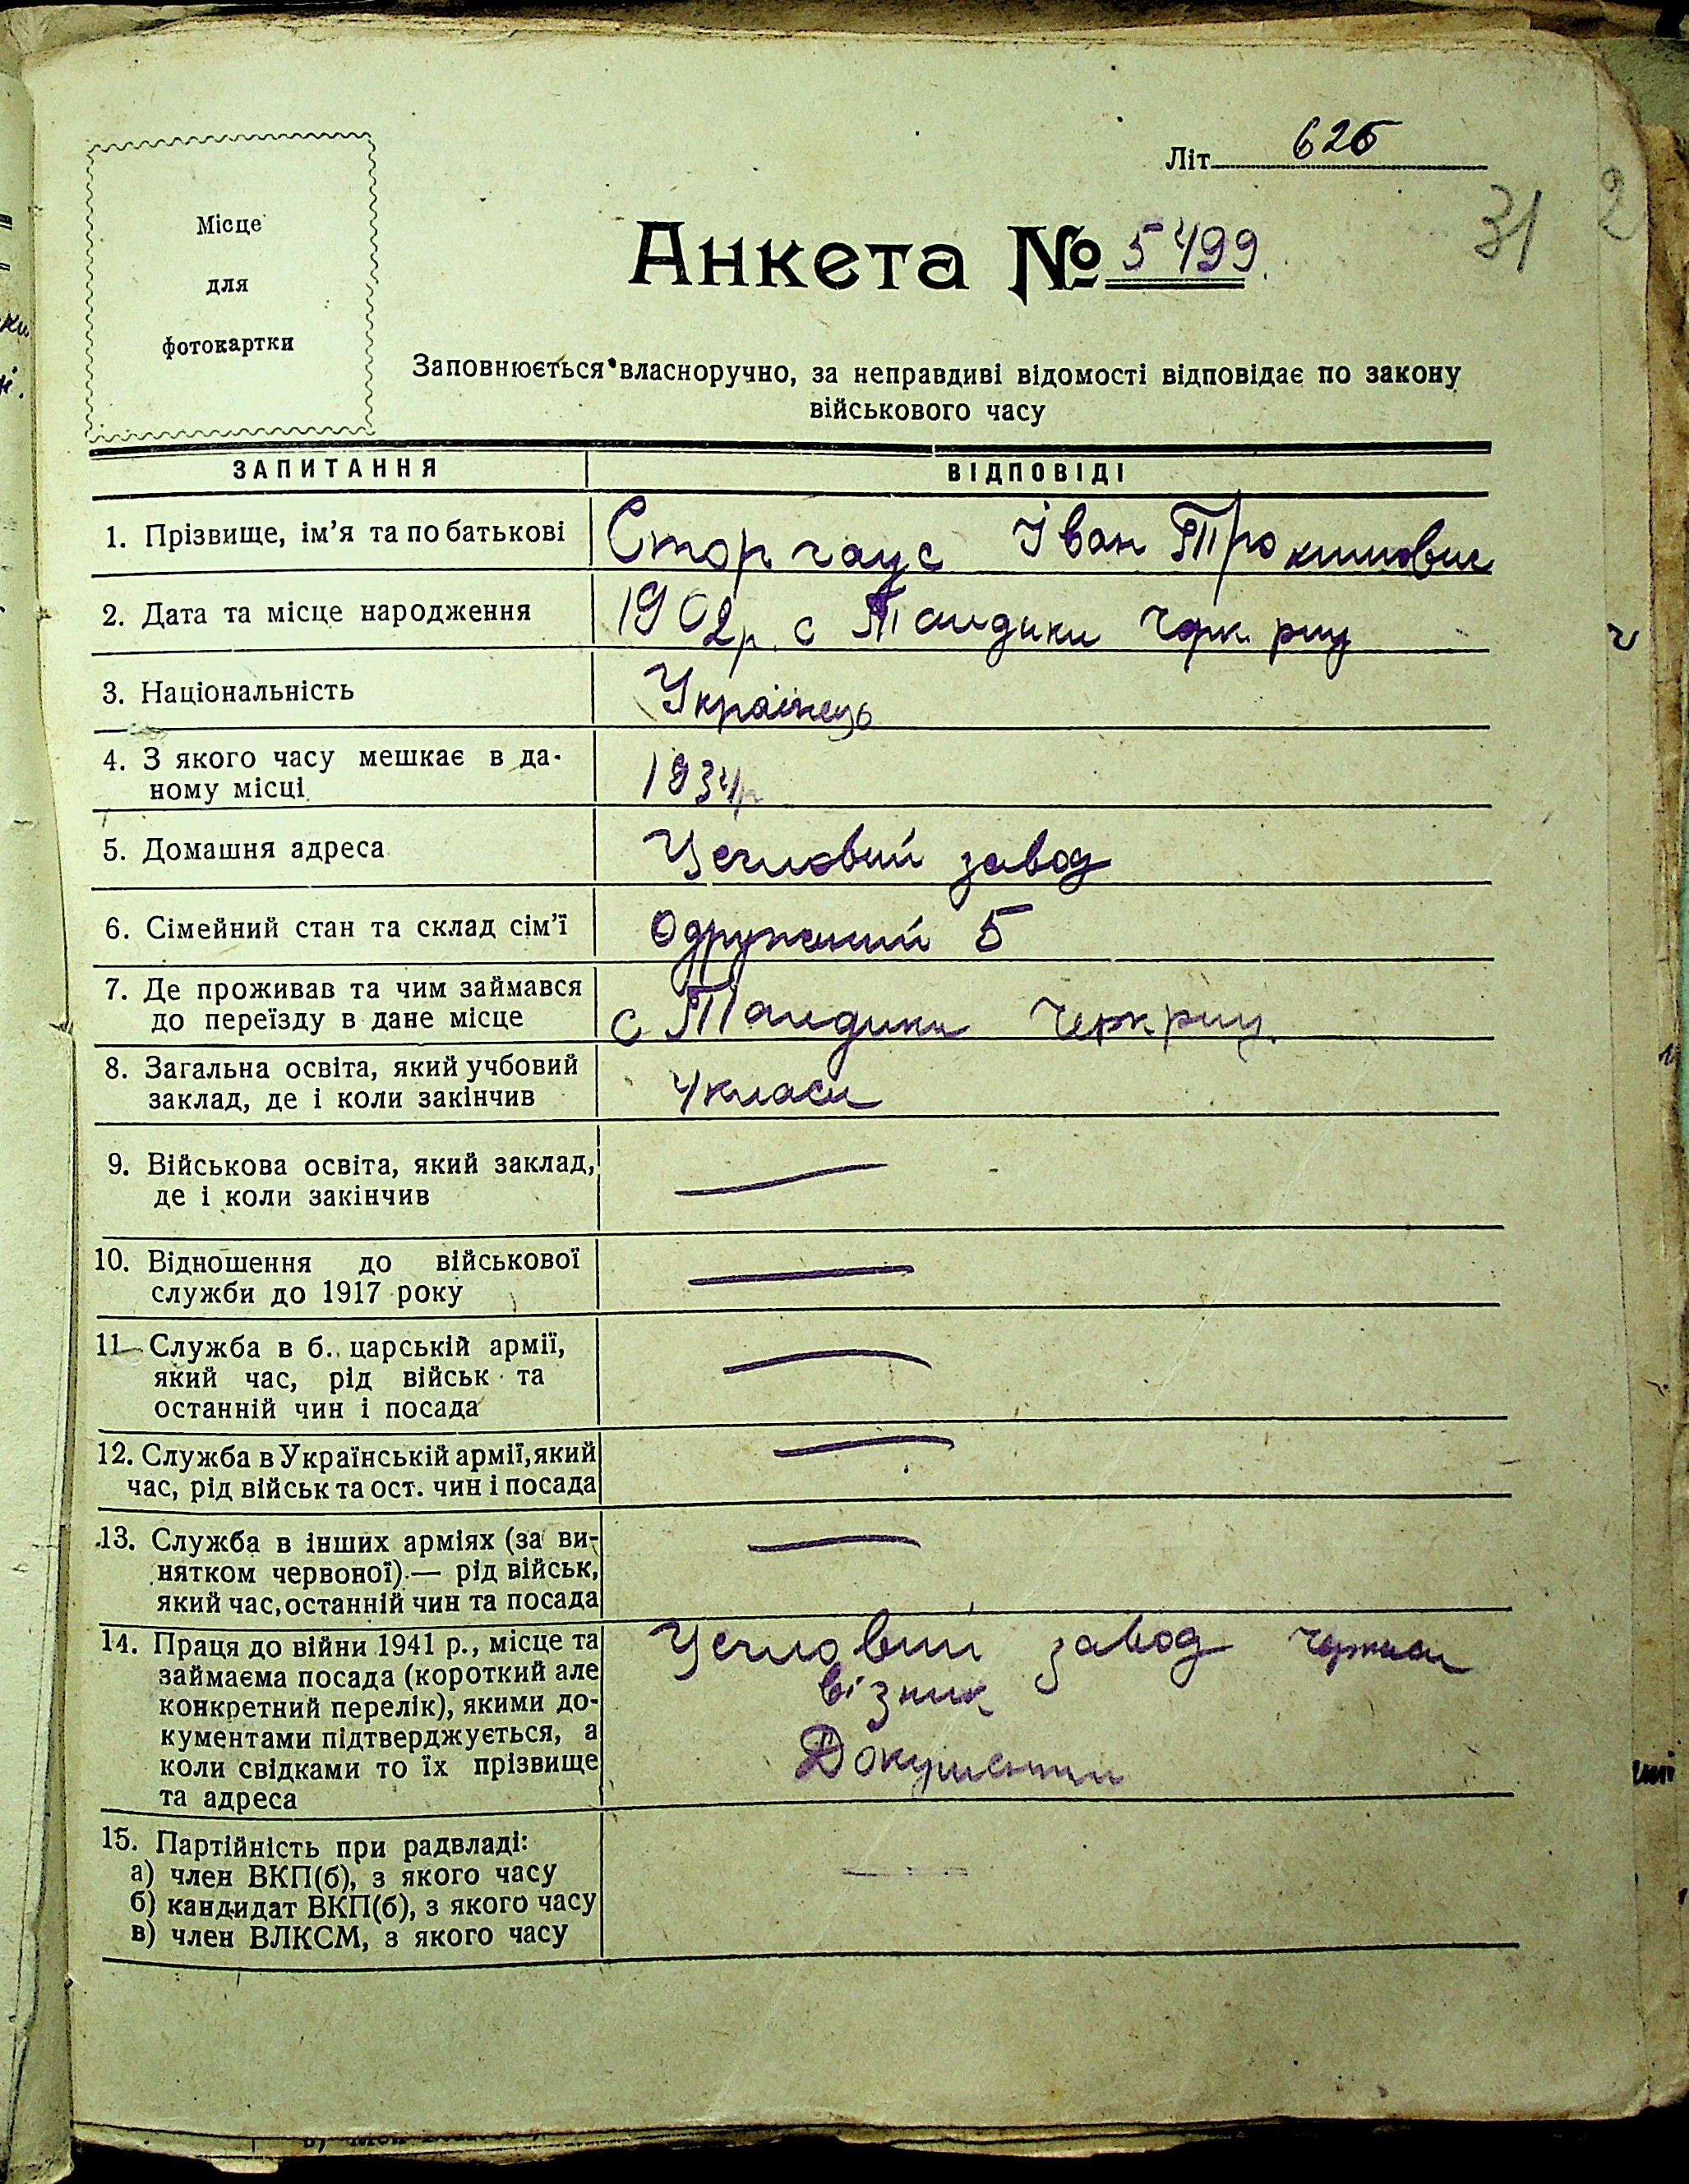 Літ. 626
31
2
Місце
для
фотокартки
Анкета № 5499.
Заповнюється власноручно, за неправдиві відомості відповідає по закону
військового часу
ЗАПИТАННЯ ВІДПОВІДІ
1. Прізвище, ім’я та по батькові Сторчаус Іван Трохимович
2. Дата та місце народження 1902р. с
3. Національність Українець
4. З якого часу мешкає в да-
ному місці 1934р
5. Домашня адреса Цегловий завод
6. Сімейний стан та склад сім’ї Одружений 5
7. Де проживав та чим займався
до переїзду в дане місце с
8. Загальна освіта, який учбовий
заклад, де і коли закінчив 4 класи
9. Військова освіта, який заклад, —
де і коли закінчив
10. Відношення до військової —
служби до 1917 року
11. Служба в б. царській армії, —
який час, рід військ та
останній чин і посада
12. Служба в Українській армії, який —
час, рід військ та ост. чин і посада
13. Служба в інших арміях (за ви- —
нятком червоної) — рід військ,
який час, останній чин та посада
14. Праця до війни 1941 р., місце та Цегловий завод
займаєма посада (короткий але візник
конкретний перелік), якими до-
кументами підтверджується, а Документи
коли свідками то їх прізвище
та адреса
15. Партійність при радвладі:
а) член ВКП(б), з якого часу —
б) кандидат ВКП(б), з якого часу
в) член ВЛКСМ, з якого часу